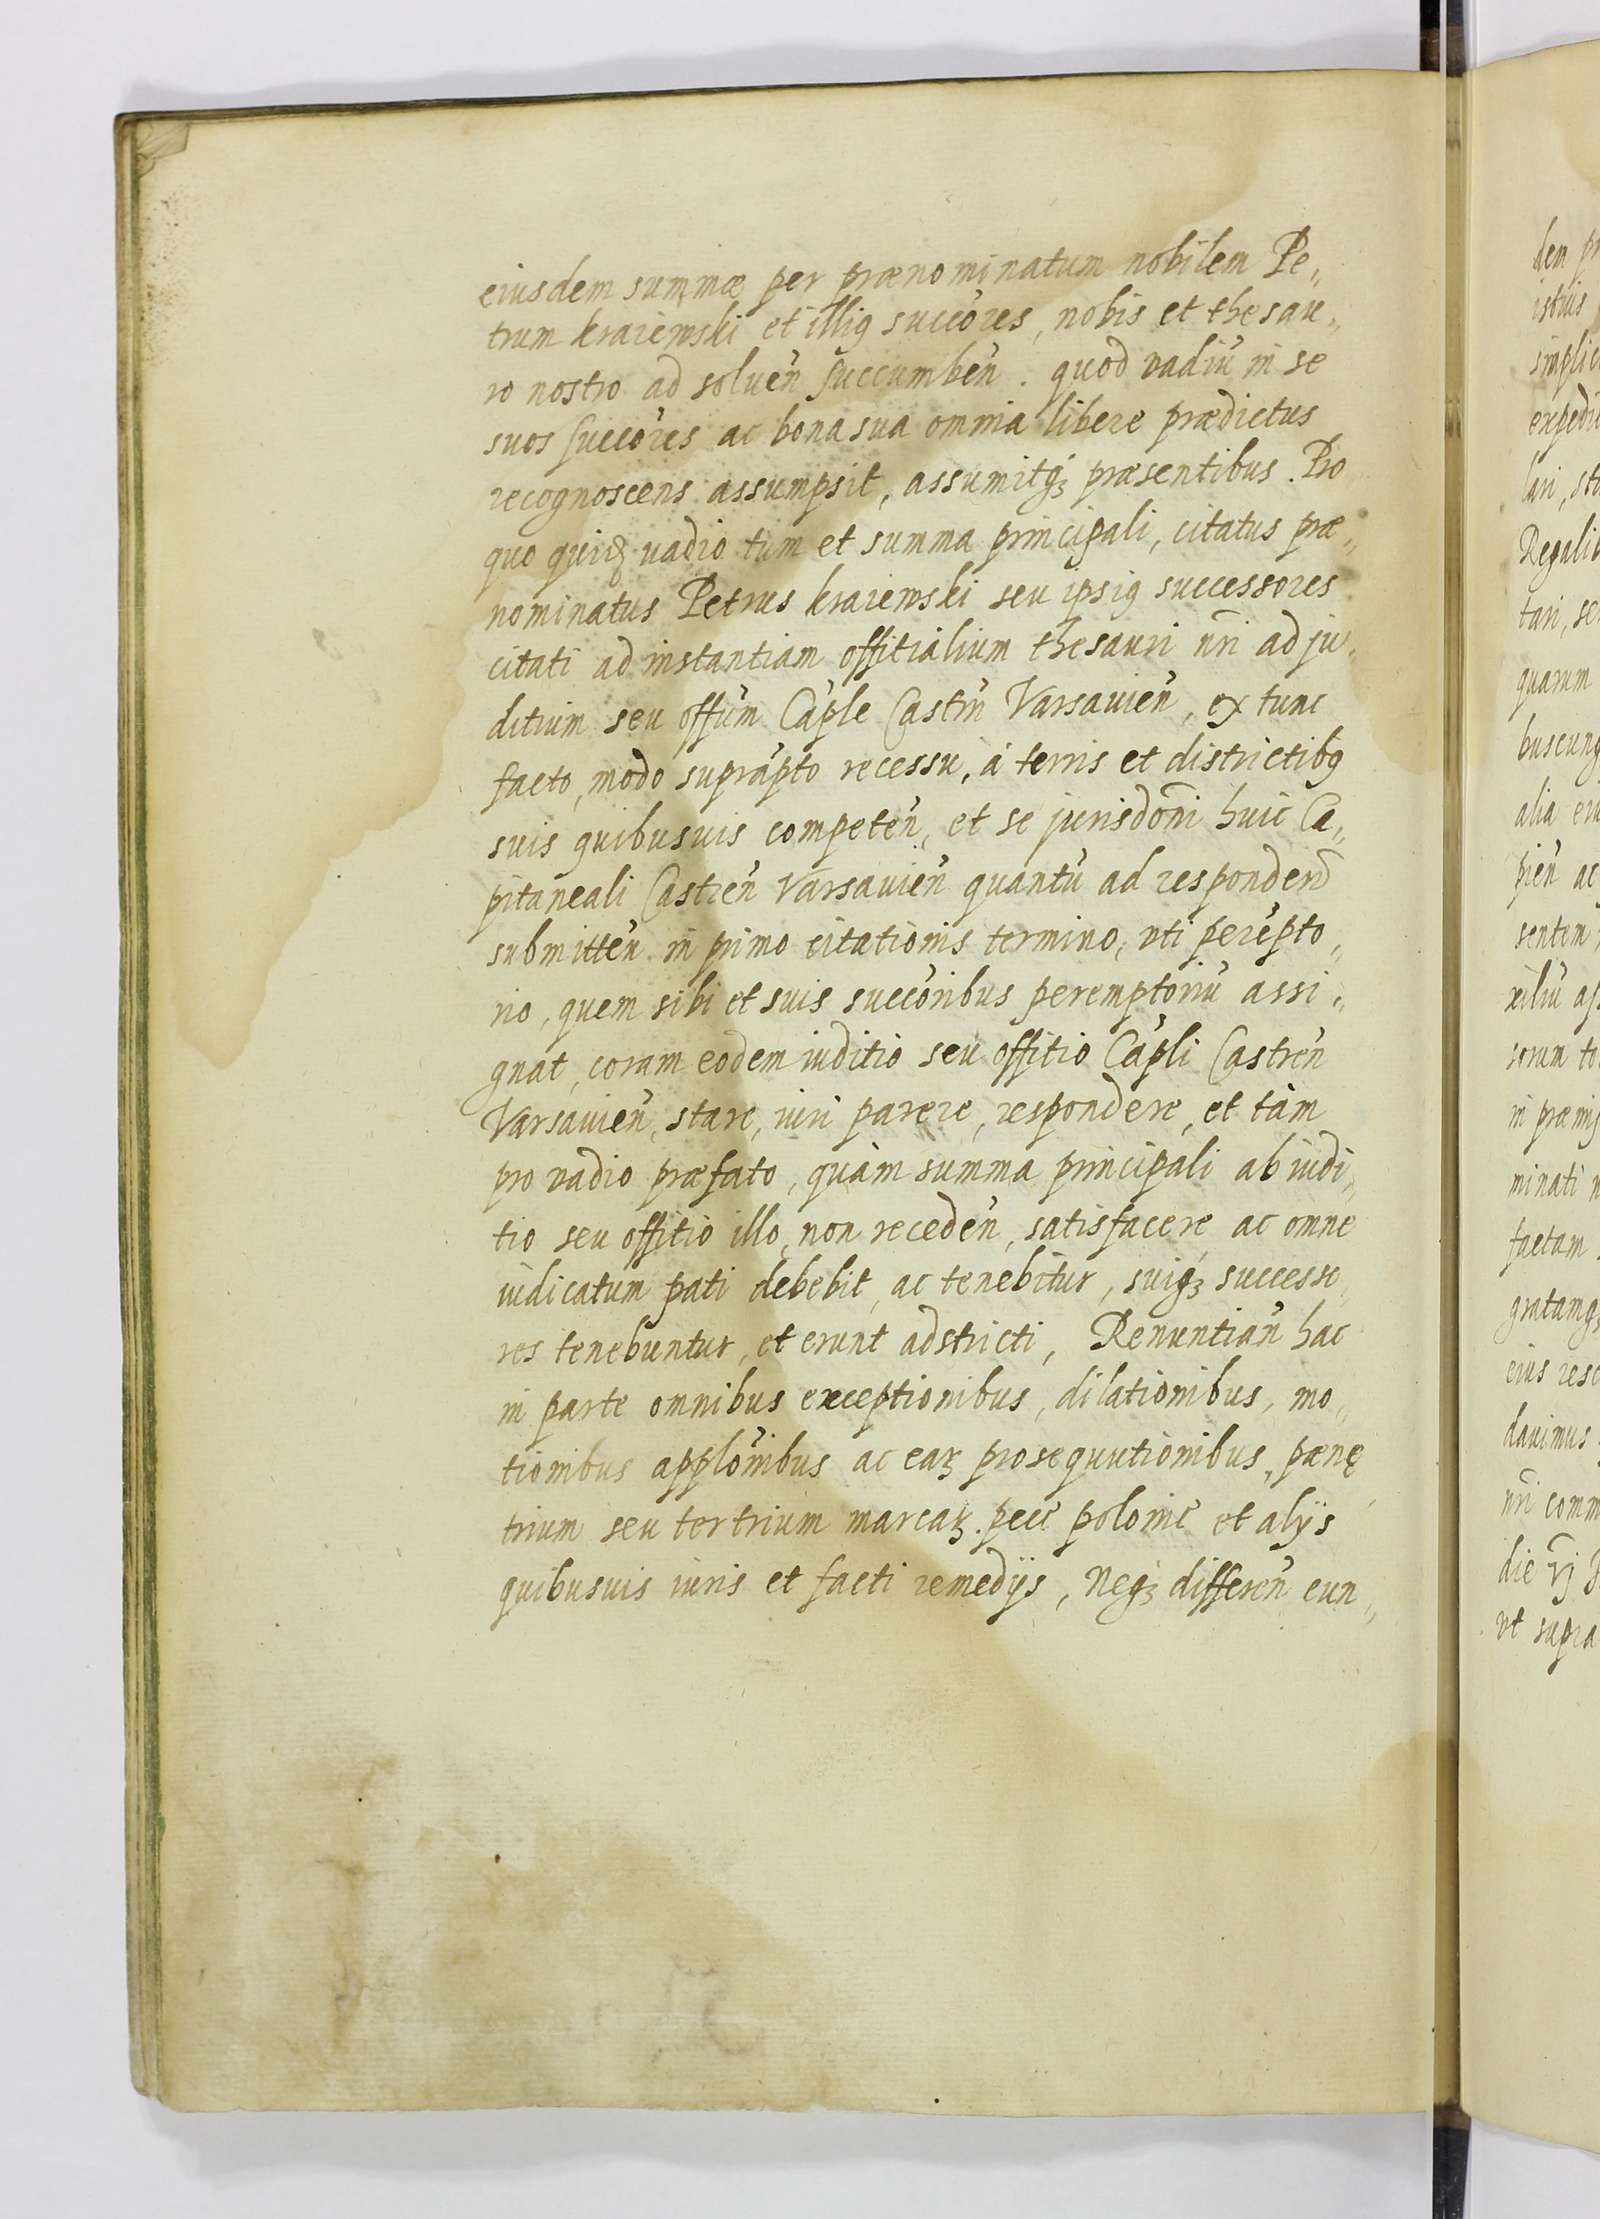 eiusdem summæ per prænominatum nobilem Pe„
trum kraiewski et illiꝰ succ̃ores, nobis et thesau„
ro nostro ad soluen̄ succumben̄. quod vadiū in se
suos succ̃ores ac bona sua omnia libere prædictus
recognoscens assumpsit, assumitqꝫ præsentibus. Pro
quo quidẽ vadio tum et summa principali, citatus præ„
nominatus Petrus kraiewski seu ipsiꝰ successores
citati ad instantiam offitialium thesauri nr̃i ad ju„
ditium seu offũm Cap̃le Castrñ Varsauien̄, ex tunc
facto, modo suprap̃to recessu, à terris et districtibꝰ
suis quibusuis competen̄, et se jurisdo̅ni huic Ca„
pitaneali Castren̄ Varsauien̄ quantū ad respondend̄
submitten̄ in primo citationis termino, vti perẽpto„
rio, quem sibi et suis succ̃oribus peremptoriū assi„
gnat, coram eodem iuditio seu offitio Cap̃li Castren̄
Varsauien̄, stare, iuri parere, respondere, et tàm
pro vadio præfato, quàm summa principali ab iudi„
tio seu offitio illo, non receden̄, satisfacere ac omne
iudicatum pati debebit, ac tenebitur, suiqꝫ successo„
res tenebuntur, et erunt adstricti, Renuntian̄ hac
in parte omnibus exceptionibus, dilationibus, mo„
tionibus applõnibus ac eaꝝ prosequutionibus, pænę
trium seu ter trium marcaꝝ pecc̃ polonic̃ et alijs
quibusuis iuris et facti remedijs, Neqꝫ differen̄ eun„
den
istius
expedi
quarum
alia
pien̄ ac
sorum
minati
factam
gratamqꝫ
eius
dauimus
nr̃i comm
die vj
vt supra